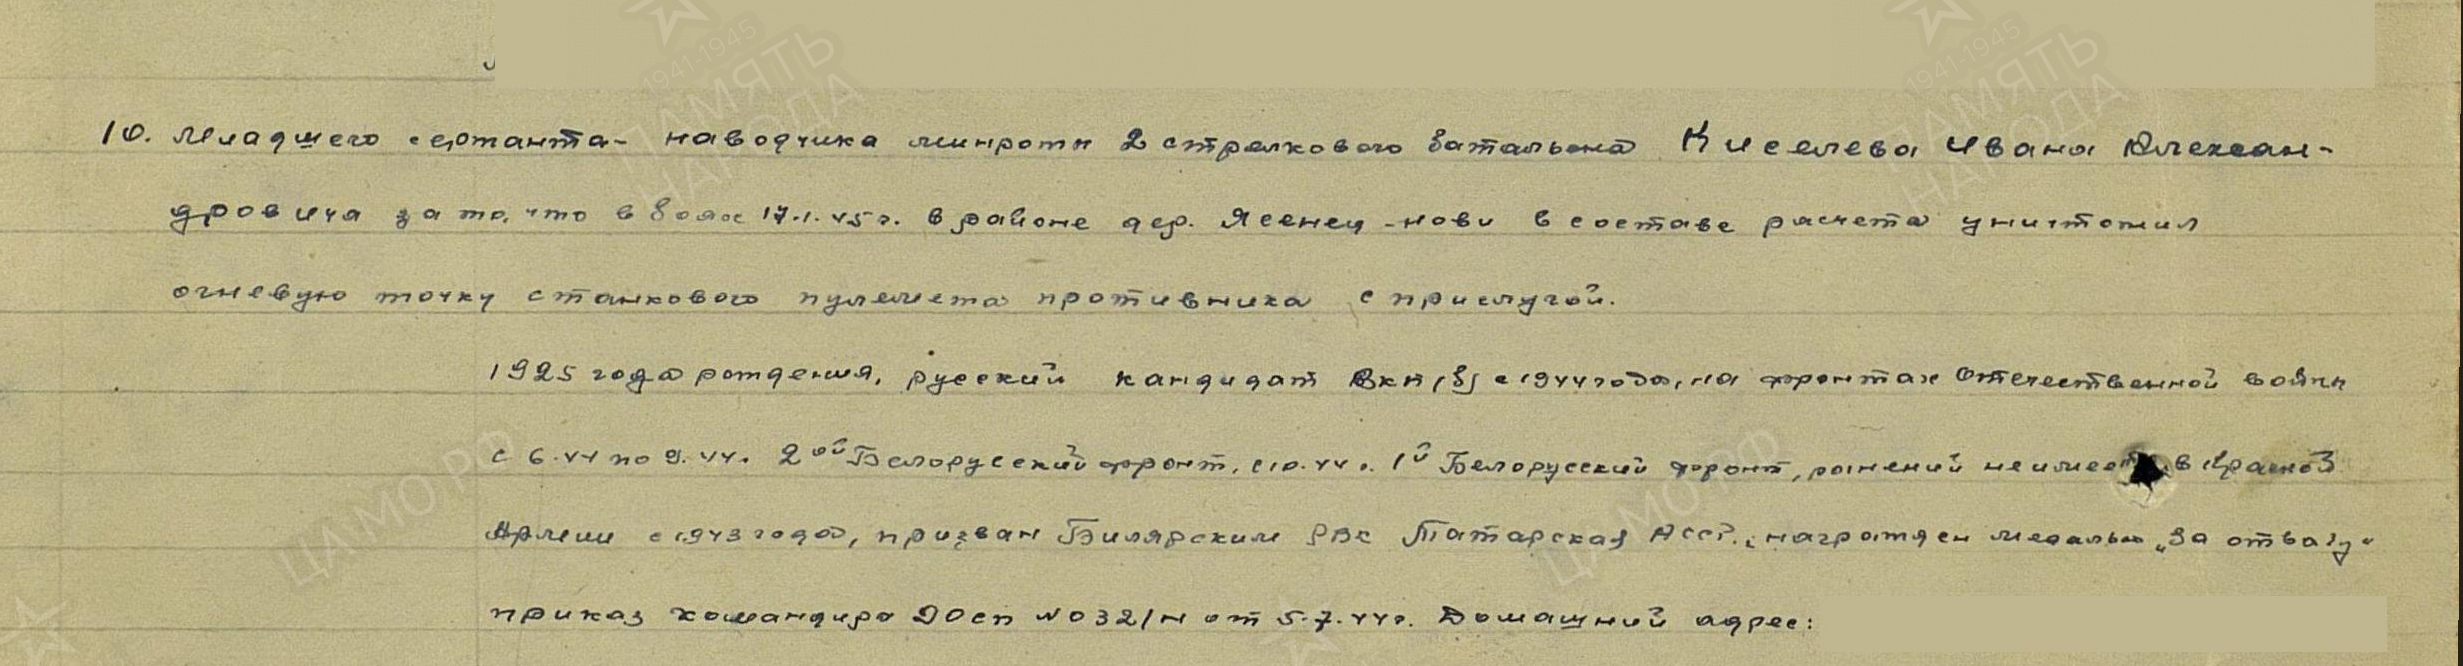 10. Младшего сержанта- наводчика минроты 2 стрелкового батальона Киселева Ивана Алексан-
дровича за то, что в боях 17.1.45г. в районе дер. Ясенец-нови в составе расчета уничтожил
огневую точку станкового пулемета противника с прислугой.
1925 года рождения, русский кандидат ВКП(б) с 1944 года, на фронтах Отечественной войны
с 6.44 по 9.44г. 2ой Белорусский фронт, с 10.44г. 1й Белорусский фронт, ранений не имеет, в Красной
Армии с 1943 года, призван Билярским РВК Татарская АССР., награжден медалью „За отвагу“
приказ командира 20сп №032/н от 5.7.44г. Домашний адрес:
1941-1945
ПАМЯТЬ
НАРОДА
1941-1945
ПАМЯТЬ
НАРОДА
ПАМЯТЬ
НАРОДА
ПАМЯТЬ
НАРОДА
ЦАМО РФ
ЦАМО РФ